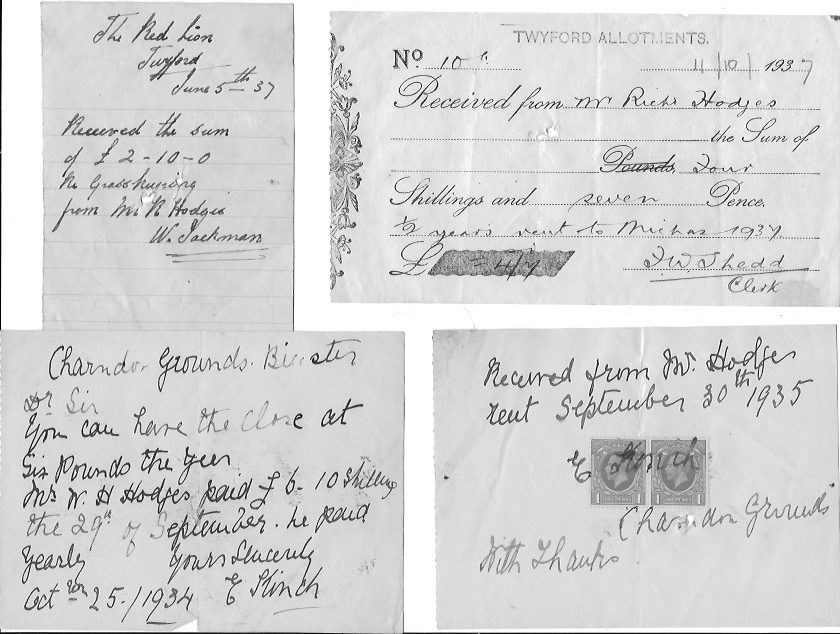 The Red Lion
Twyford
June 5th 37
Received the sum
of £ 2-10-0
re Grasskeeping
from Mr R Hodges
W. Jackman
TWYFORD ALLOTMENTS.
No 10 4/10/1937
Received from Mr Richd Hodges
the Sum of
Pounds, Four
Shillings and seven Pence.
1/2 years rent to Michas 1937.
£ = 4/7 F.W. Shedd
Clerk
Charndon Grounds. Bicester
Dr Sir
You can have the Close at
Six Pounds the Year
Mr W. H Hodges paid £ 6-10 Shillings
the 29th of September. he paid
Yearly Yours Sincerely
Oct 25./1934 E
Received from Mr. Hodges
rent September 30th 1935
E
1 ONE PENNY 1 1 ONE PENNY 1
Charndon Grounds
With Thanks